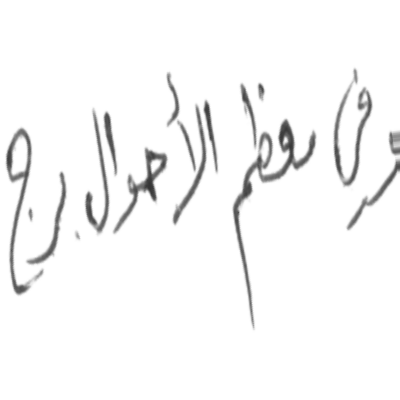 في معظم الأحوال برج